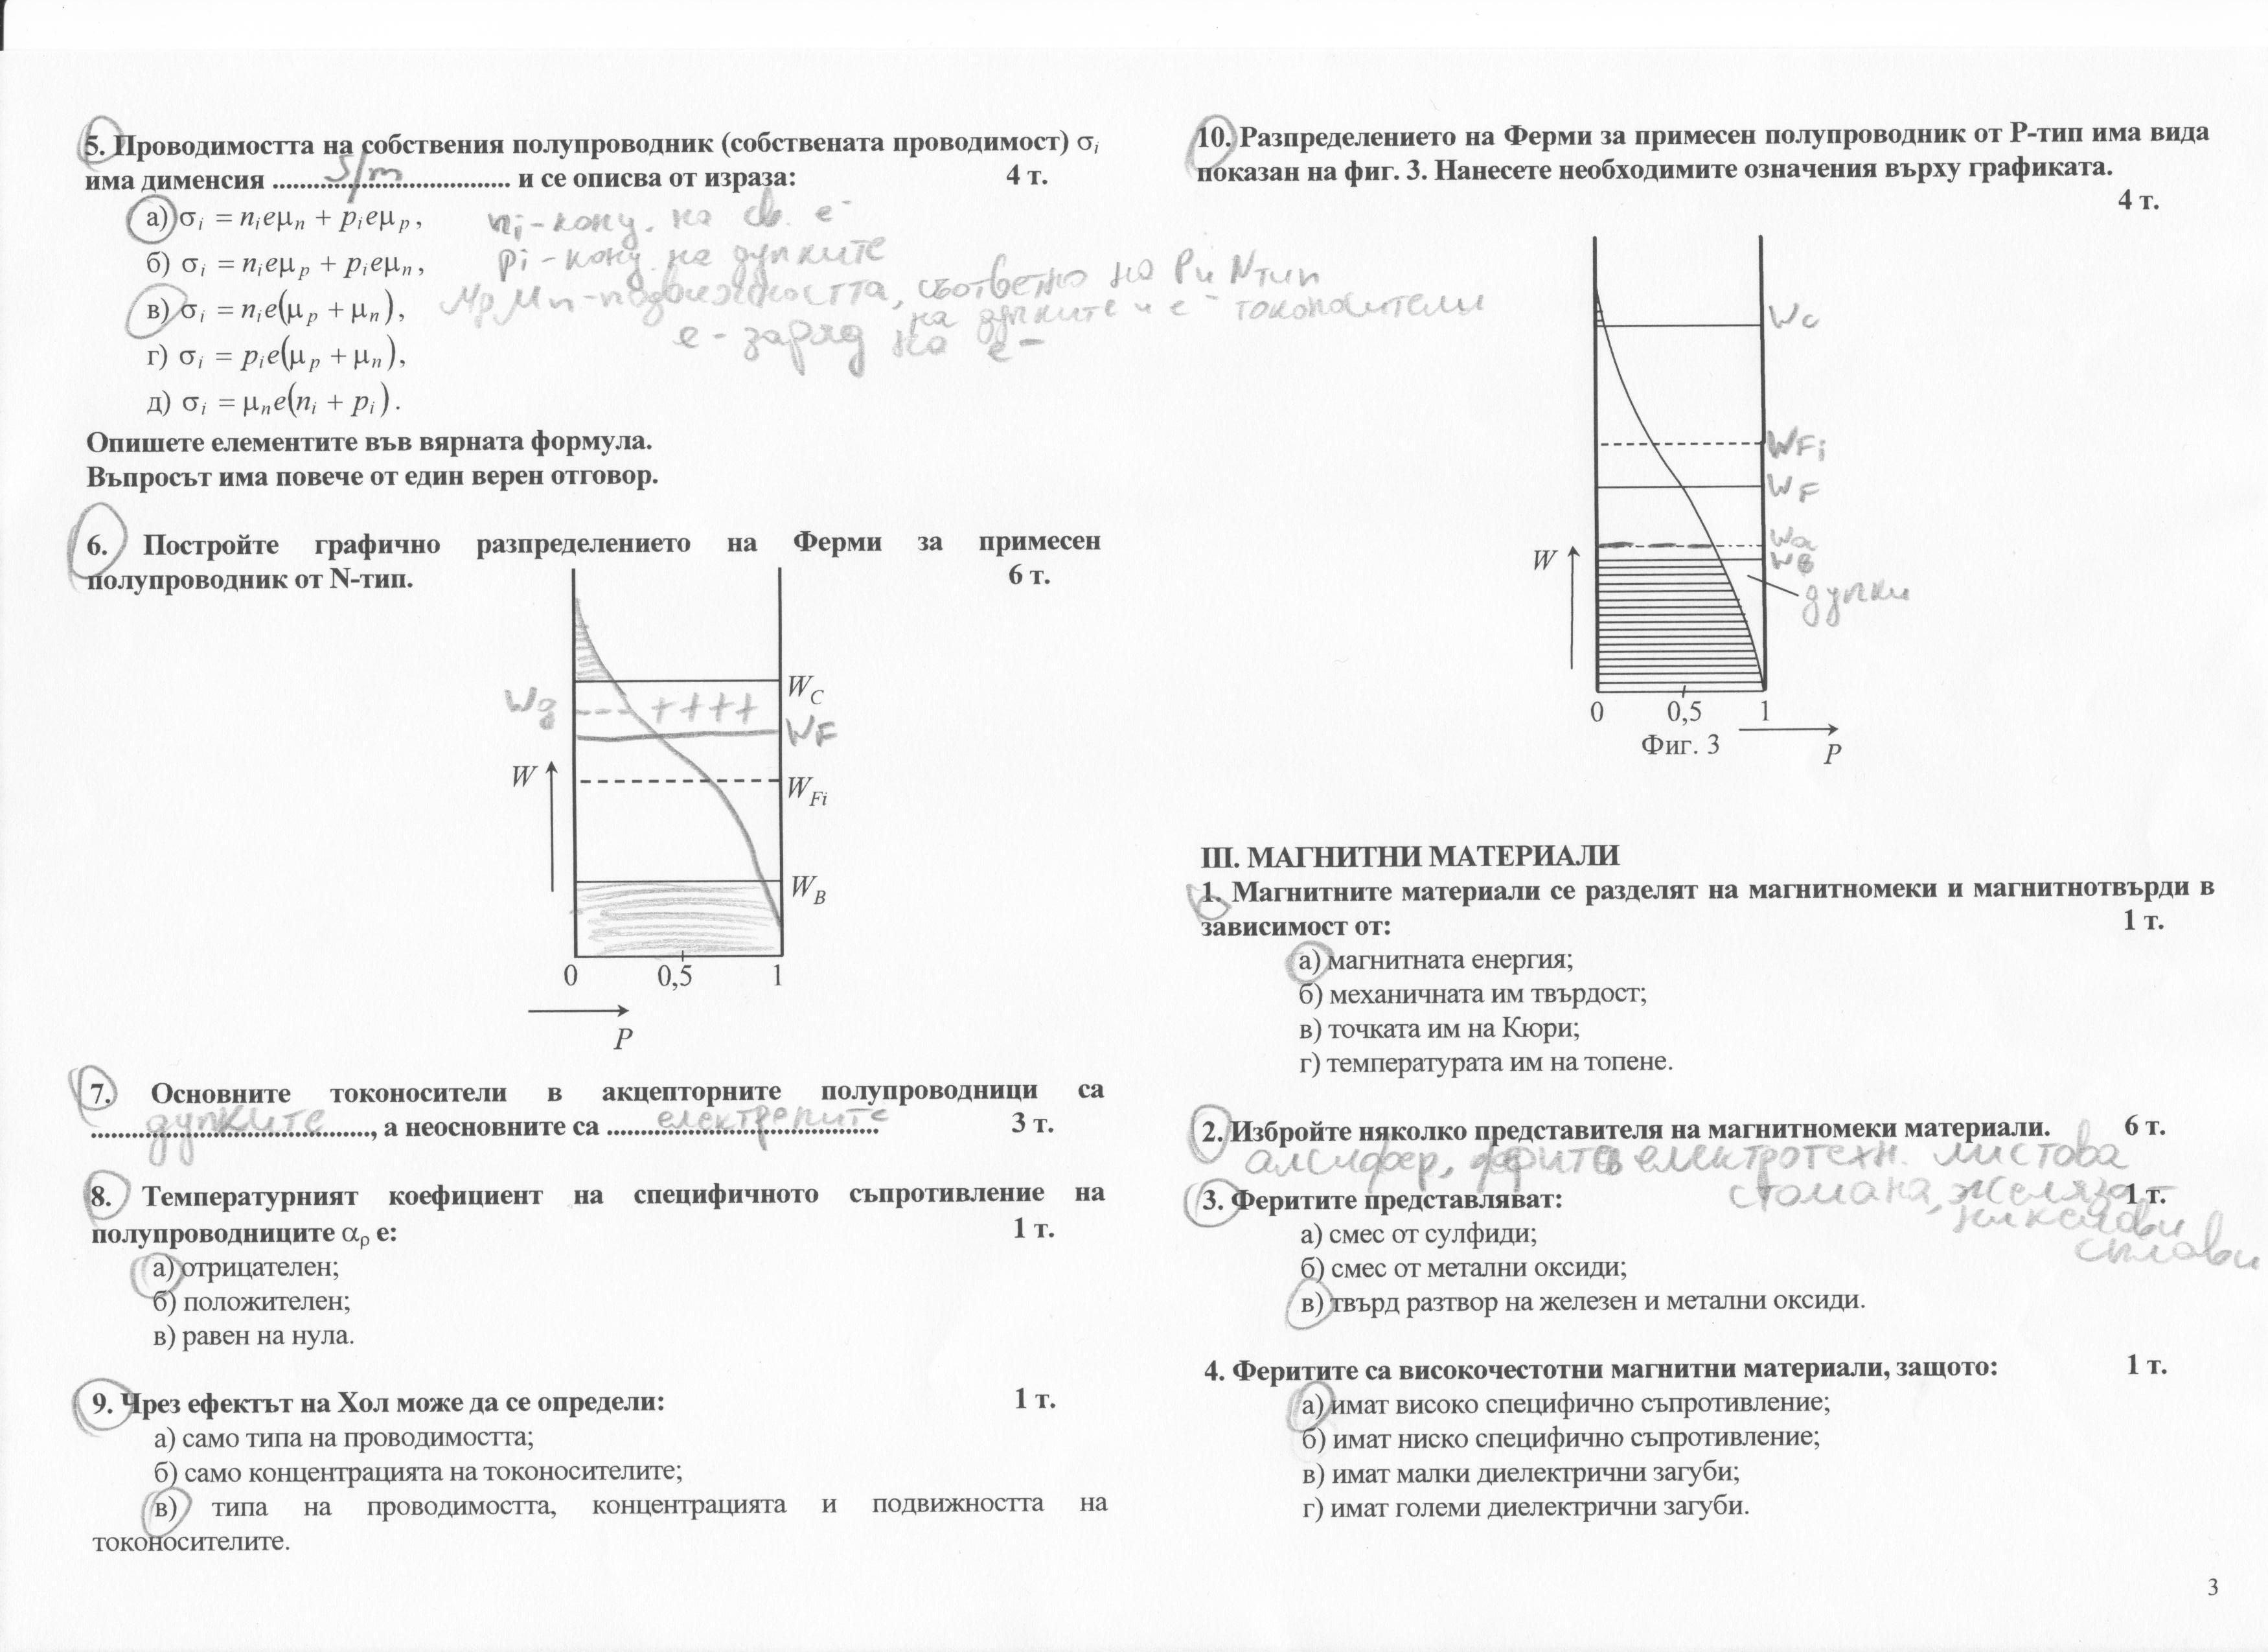 5. Проводимостта на собствения полупроводник (собствената проводимост) σi
има дименсия ........ S/m ........ и се описва от израза: 4 т.
а) σi = nieμn + pieμp, ni - конц. на св. е-
б) σi = nieμp + pieμn, pi - конц. на дупките
в) σi = nie(μp + μn), μp μn - подвижността, съответно на P и N тип
на дупките и е- токоносители
г) σi = pie(μp + μn), е - заряд на е-
д) σi = μne(ni + pi).
Опишете елементите във вярната формула.
Въпросът има повече от един верен отговор.
6. Постройте графично разпределението на Ферми за примесен
полупроводник от N-тип. 6 т.
WC
Wg ++++
WF
W
WFi
WB
0 0,5 1
P
7. Основните токоносители в акцепторните полупроводници са
дупките, а неосновните са електроните 3 т.
8. Температурният коефициент на специфичното съпротивление на
полупроводниците αρ е: 1 т.
а) отрицателен;
б) положителен;
в) равен на нула.
9. Чрез ефектът на Хол може да се определи: 1 т.
а) само типа на проводимостта;
б) само концентрацията на токоносителите;
в) типа на проводимостта, концентрацията и подвижността на
токоносителите.
10. Разпределението на Ферми за примесен полупроводник от P-тип има вида
показан на фиг. 3. Нанесете необходимите означения върху графиката.
4 т.
Wc
WFi
WF
Wa
W
Wв
дупки
0 0,5 1
Фиг. 3
P
III. МАГНИТНИ МАТЕРИАЛИ
1. Магнитните материали се разделят на магнитномеки и магнитнотвърди в
зависимост от: 1 т.
а) магнитната енергия;
б) механичната им твърдост;
в) точката им на Кюри;
г) температурата им на топене.
2. Избройте няколко представителя на магнитномеки материали. 6 т.
алсифер, електротехн. листова
стомана, желязо
никелови
сплави
3. Феритите представляват: 1 т.
а) смес от сулфиди;
б) смес от метални оксиди;
в) твърд разтвор на железен и метални оксиди.
4. Феритите са високочестотни магнитни материали, защото: 1 т.
а) имат високо специфично съпротивление;
б) имат ниско специфично съпротивление;
в) имат малки диелектрични загуби;
г) имат големи диелектрични загуби.
3